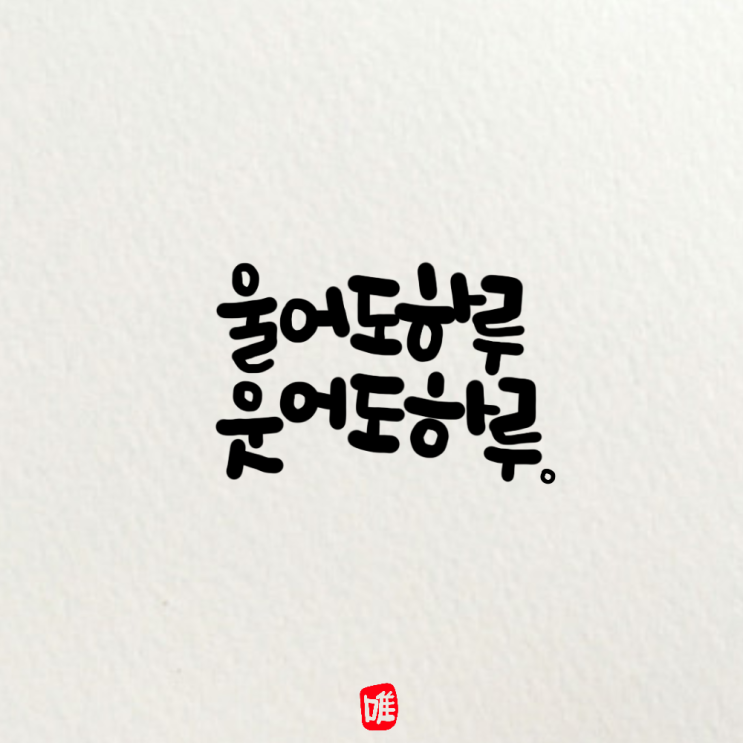 울어도하루
웃어도하루。
唯